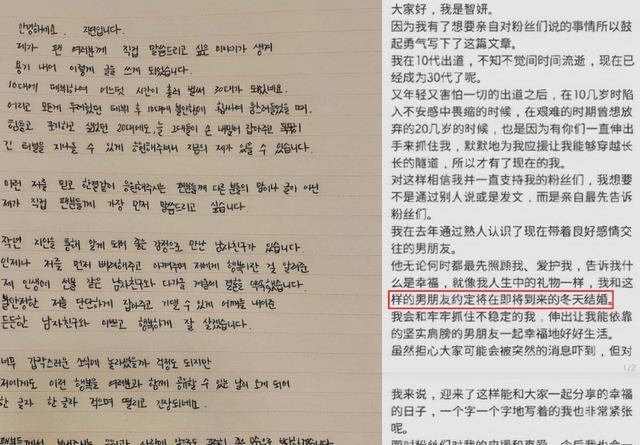 안녕하세요. 지연입니다.
제가 팬 여러분께 직접 말씀드리고 싶은 이야기가 생겨
용기 내어 이렇게 글을 쓰게 되었습니다.
10대에 데뷔하여 어느덧 시간이 흘러 벌써 30대가 되었네요.
어리고 모든게 두려웠던 데뷔 후 10대에 불안함에 휩싸여 움츠러들었을 때,
힘들고 포기하고 싶었던 20대에도, 늘 그대들이 손 내밀어 잡아주고 묵묵히
긴 터널을 지나올 수 있게 응원해주셔서 지금의 제가 있을 수 있습니다.
이런 저를 믿고 한결같이 응원해주시는 팬분들께 다른 분들의 말이나 글이 아닌
제가 직접 팬분들께 가장 먼저 말씀드리고 싶습니다.
작년 지인을 통해 알게 되어 좋은 감정으로 만난 남자친구가 있습니다.
언제나 저를 먼저 배려해주고 아껴주며 저에게 행복이란 걸 알려준
제 인생에 선물 같은 남자친구와 다가올 겨울에 결혼을 약속했습니다.
불안정한 저를 단단하게 잡아주고 기댈 수 있게 어깨를 내어준
든든한 남자친구와 이쁘고 행복하게 잘 살겠습니다.
너무 갑작스러운 소식에 놀라셨을까 걱정도 되지만
저에게도 이런 행복을 여러분과 함께 공유할 수 있는 날이 오게 되어
한 글자 한 글자 적으며 떨리고 긴장되네요.
大家好，我是智妍。
因为我有了想要亲自对粉丝们说的事情所以鼓起勇气写下了这篇文章。
我在10代出道，不知不觉间时间流逝，现在已经成为30代了呢。
又年轻又害怕一切的出道之后，在10几岁时陷入不安感中畏缩的时候，在艰难的时期曾想放弃的20几岁的时候，也是因为有你们一直伸出手来抓住我，默默地为我应援让我能够穿越长长的隧道，所以才有了现在的我。
对这样相信我并一直支持我的粉丝们，我想要不是通过别人说或是发文，而是亲自最先告诉粉丝们。
我在去年通过熟人认识了现在带着良好感情交往的男朋友。
他无论何时都最先照顾我、爱护我，告诉我什么是幸福，就像我人生中的礼物一样，我和这样的男朋友约定将在即将到来的冬天结婚。
我会和牢牢抓住不稳定的我，伸出让我能依靠的坚实肩膀的男朋友一起幸福地好好生活。
虽然担心大家可能会被突然的消息吓到，但对
1/2
我来说，迎来了这样能和大家一起分享的幸福的日子，一个字一个字地写着的我也非常紧张呢。